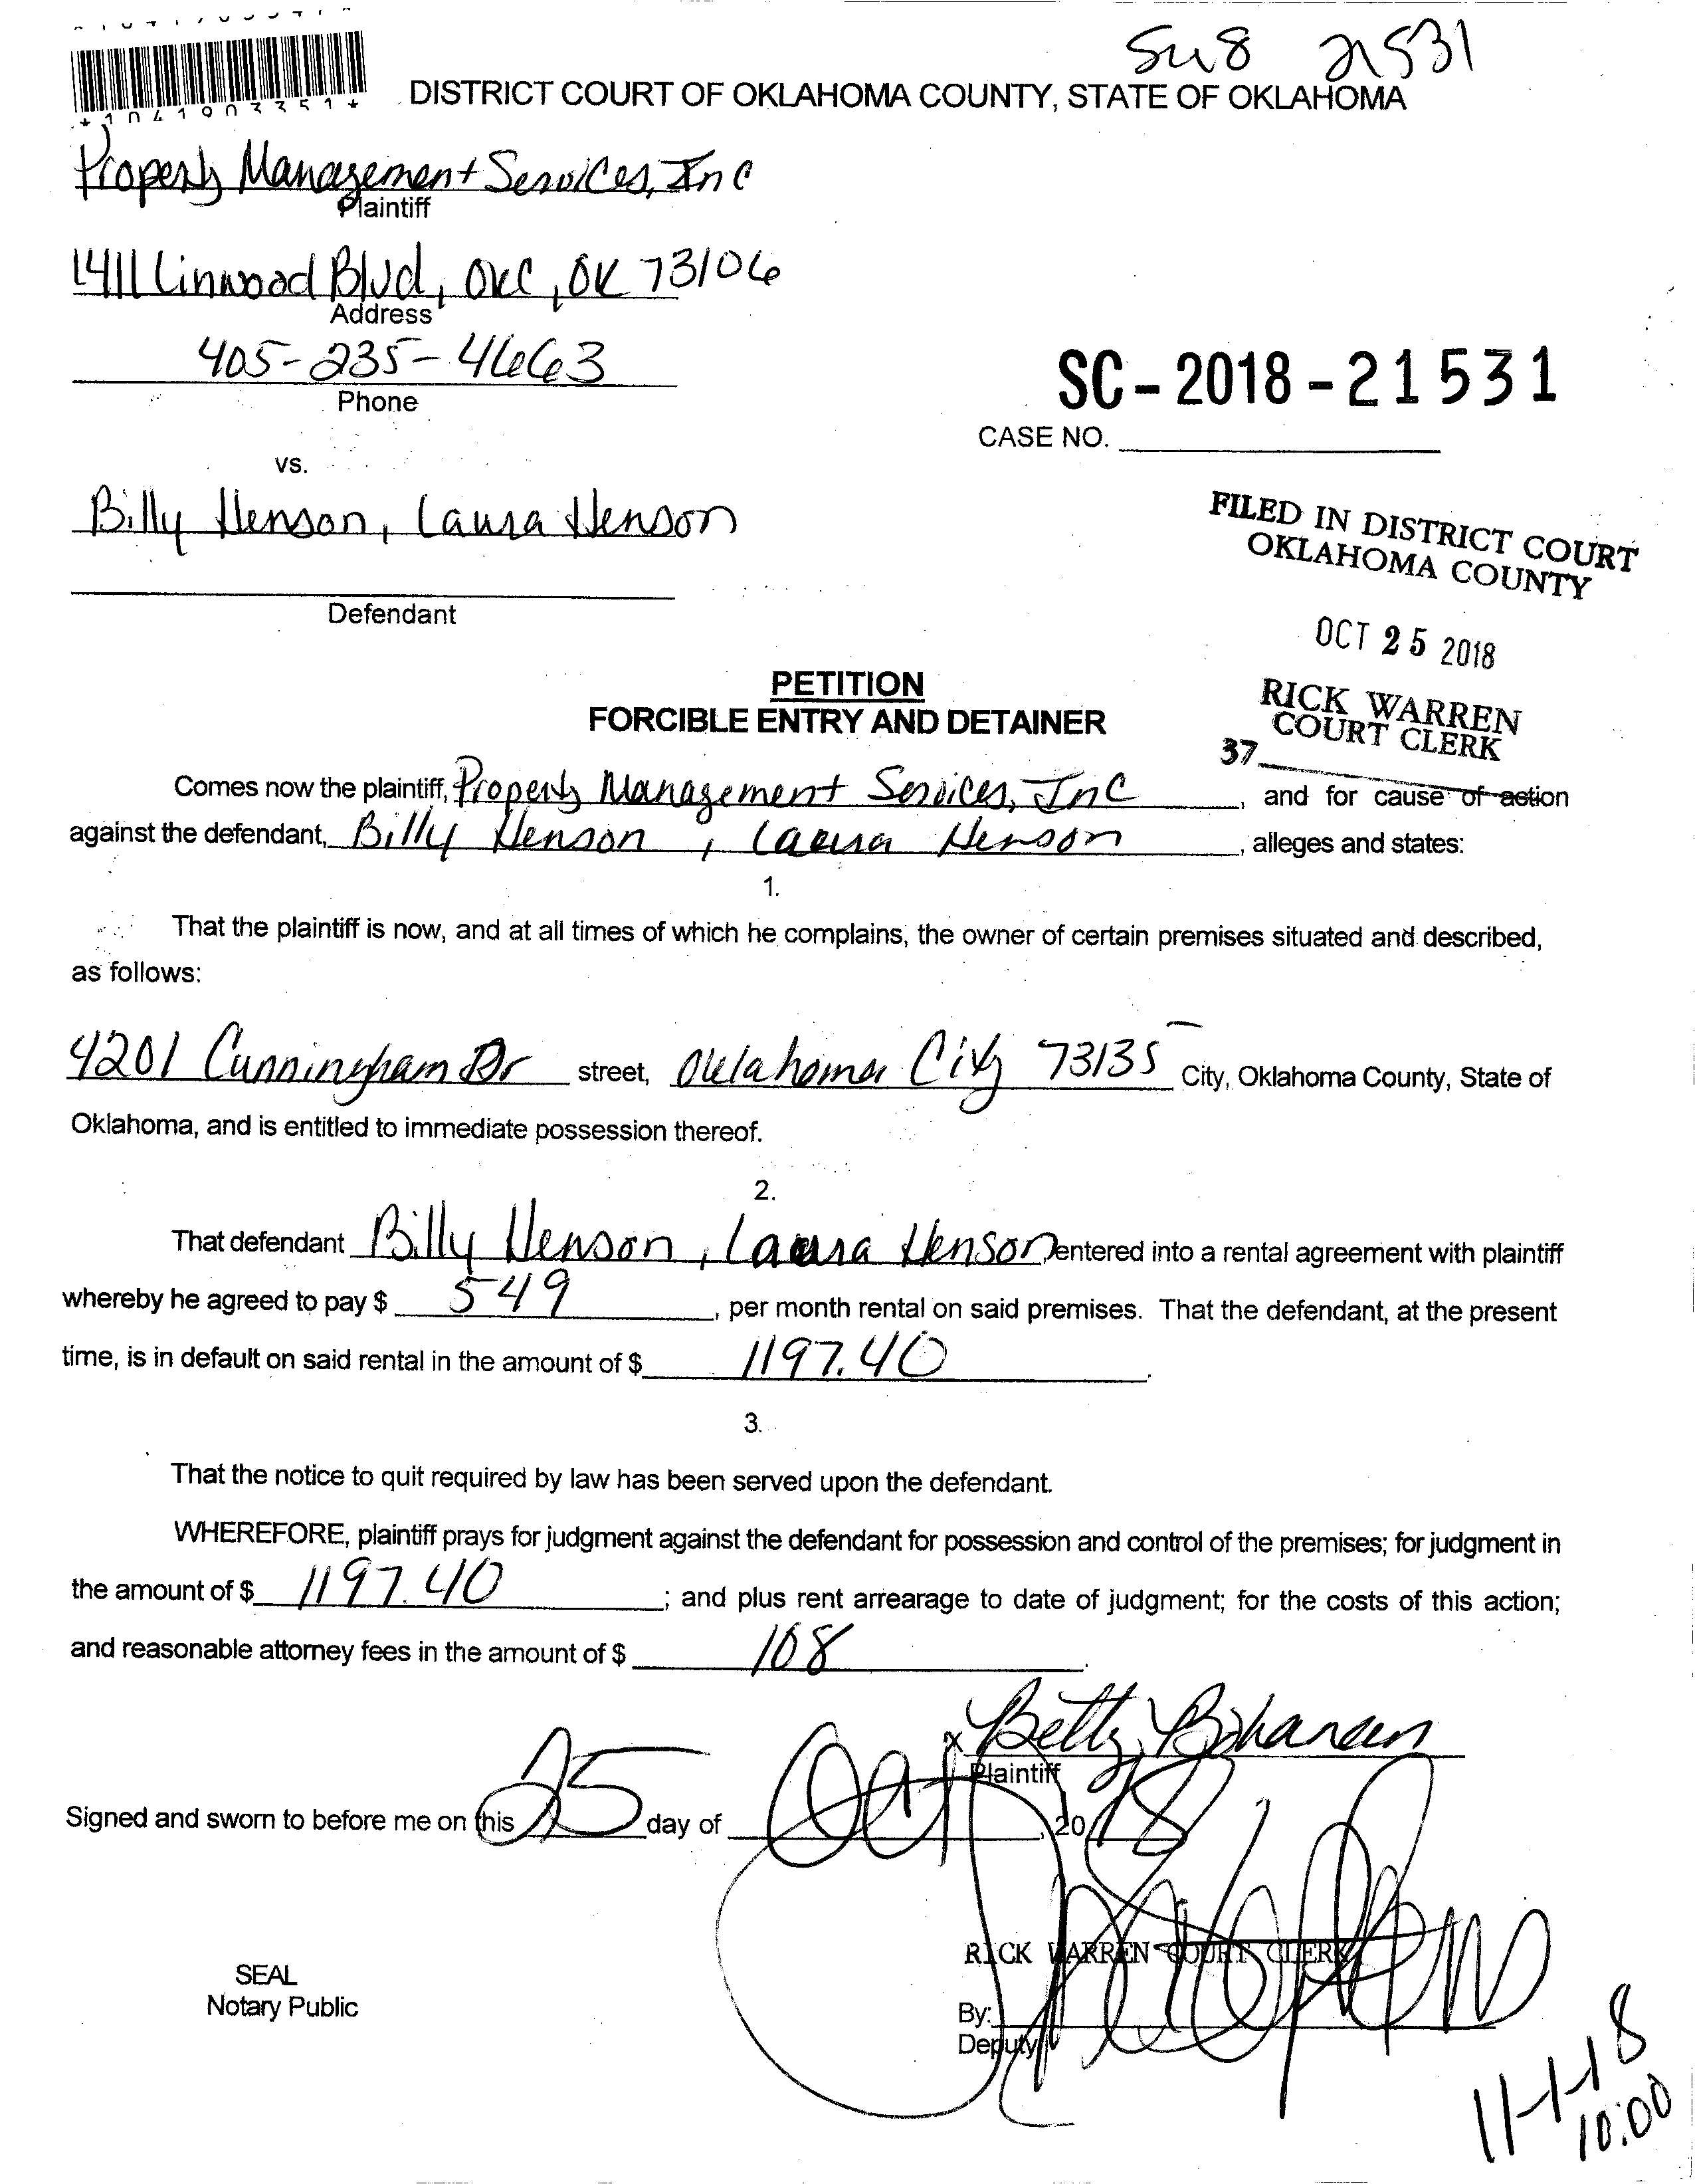 Su8 21531
*1041903351*
DISTRICT COURT OF OKLAHOMA COUNTY, STATE OF OKLAHOMA
Property Management Services, Inc
Plaintiff
1411 Linwood Blvd, OKC, OK 73106
Address
405-235-4663
Phone
SC-2018-21531
CASE NO.
vs.
Billy Henson, Laura Henson
Defendant
FILED IN DISTRICT COURT
OKLAHOMA COUNTY
OCT 25 2018
RICK WARREN
COURT CLERK
37
PETITION
FORCIBLE ENTRY AND DETAINER
Comes now the plaintiff, Property Management Services, Inc, and for cause of action
against the defendant, Billy Henson, Laura Henson, alleges and states:
1.
That the plaintiff is now, and at all times of which he complains, the owner of certain premises situated and described,
as follows:
4201 Cunningham Dr street, Oklahoma City 73135 City, Oklahoma County, State of
Oklahoma, and is entitled to immediate possession thereof.
2.
That defendant Billy Henson, Laura Henson, entered into a rental agreement with plaintiff
whereby he agreed to pay $ 549, per month rental on said premises. That the defendant, at the present
time, is in default on said rental in the amount of $ 1197.40.
3.
That the notice to quit required by law has been served upon the defendant.
WHEREFORE, plaintiff prays for judgment against the defendant for possession and control of the premises; for judgment in
the amount of $ 1197.40; and plus rent arrearage to date of judgment; for the costs of this action;
and reasonable attorney fees in the amount of $ 108.
x Betty Bohanan
Plaintiff
Signed and sworn to before me on this 25 day of Oct, 2018
RICK WARREN COURT CLERK
SEAL
Notary Public
By:
Deputy
11-1-18
10:00